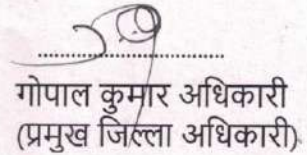 गोपाल कुमार अधिकारी
(प्रमुख जिल्ला अधिकारी)